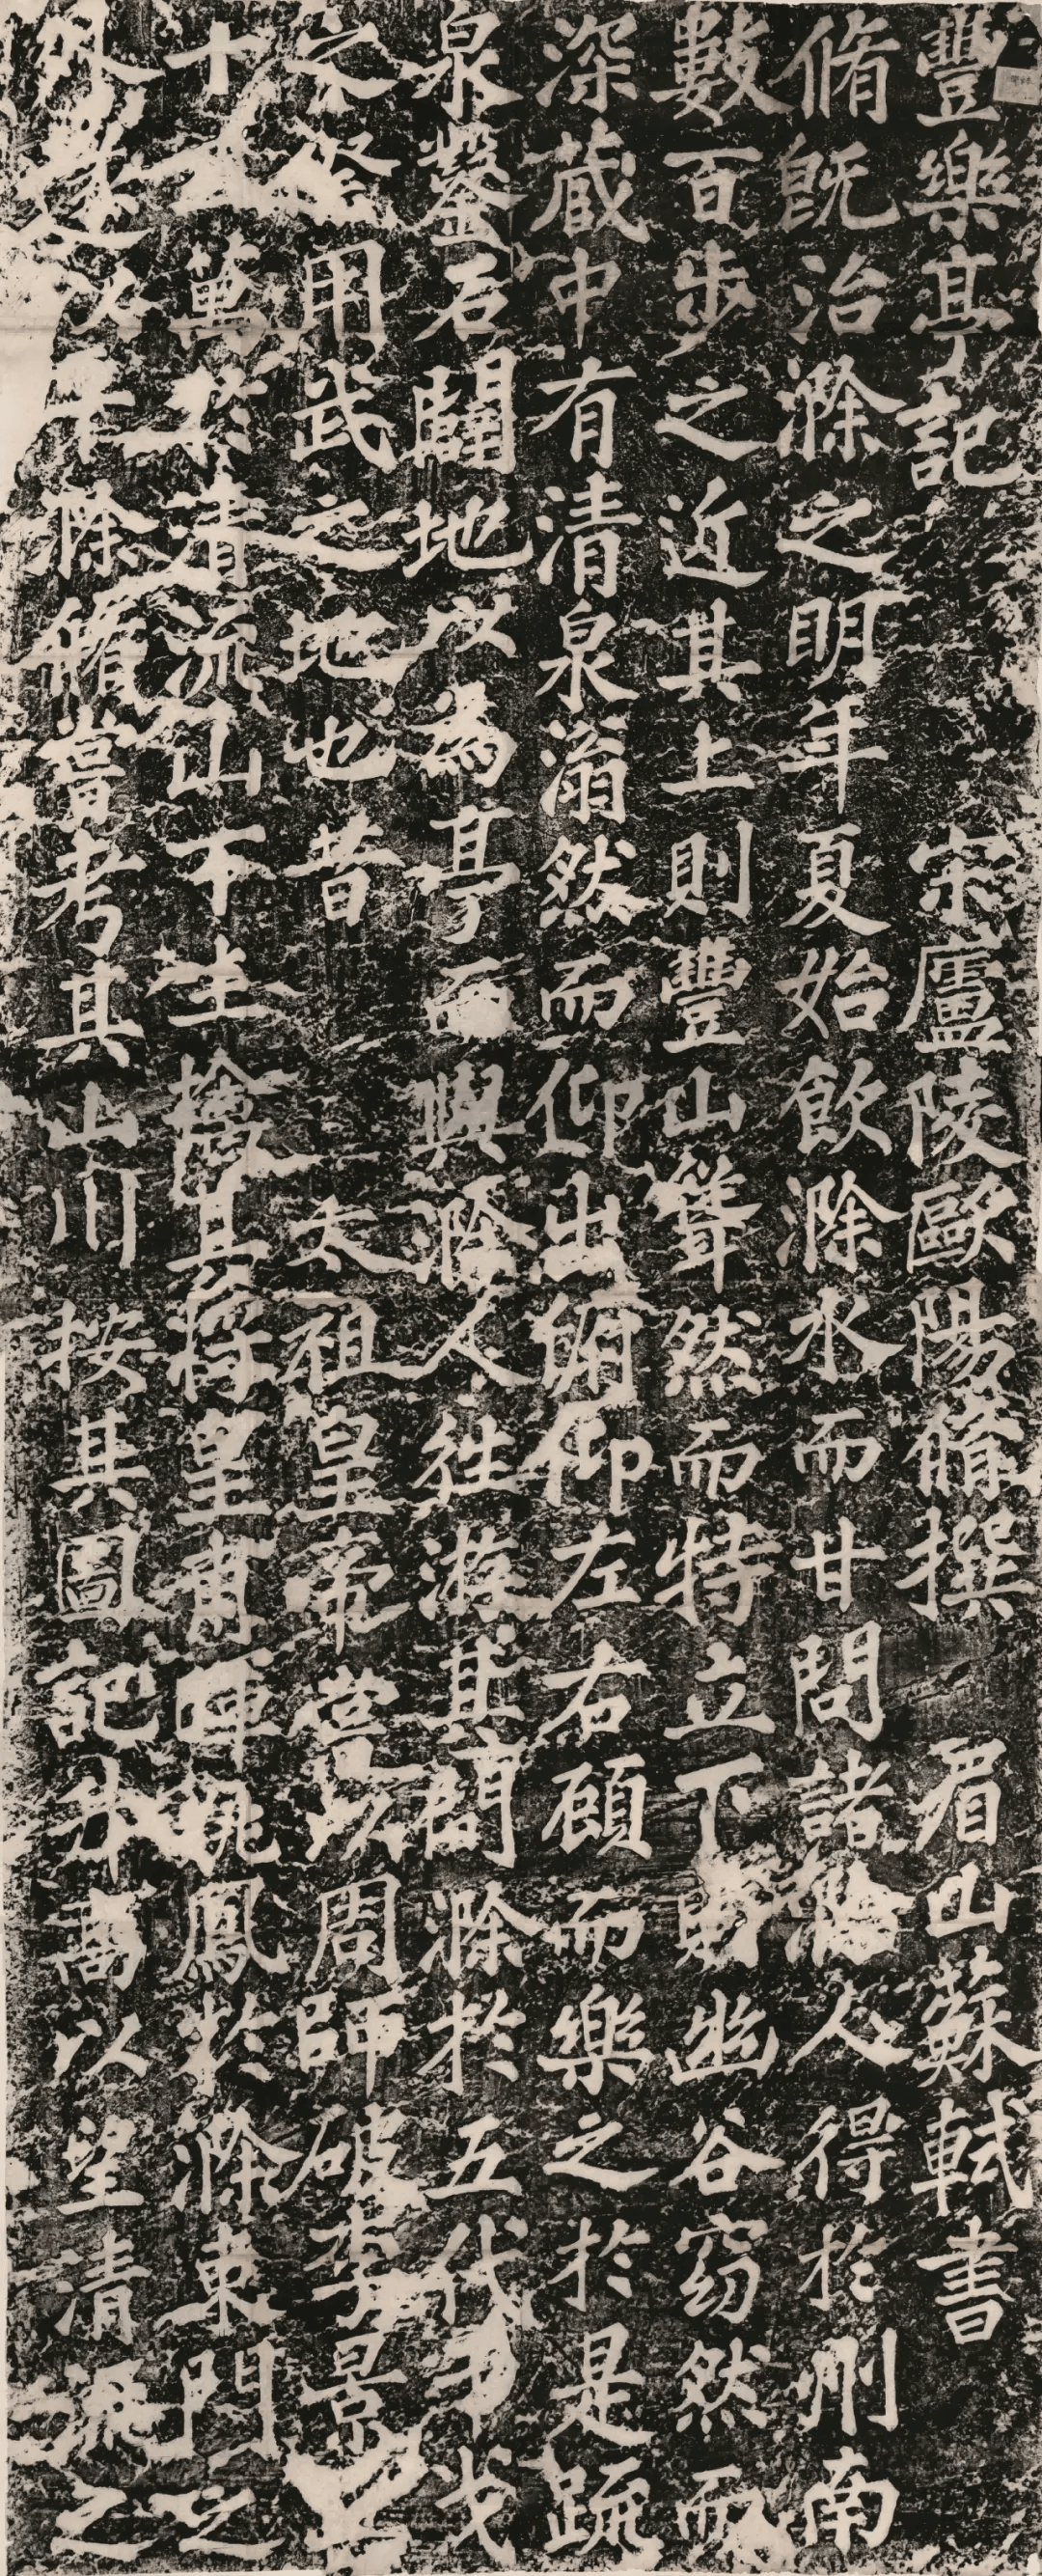 豐樂亭記 宋廬陵歐陽脩撰 眉山蘇軾書
脩既治滁之明年夏始飲滁水而甘問諸滁人得於州南
數百步之近其上則豐山聳然而特立下則幽谷窈然而
深藏中有清泉滃然而仰出俯仰左右顧而樂之於是疏
泉鑿石闢地以為亭而與滁人往游其間滁於五代干戈
之際用武之地也昔 太祖皇帝嘗以周師破李景兵
十五萬於清流山下生擒其將皇甫暉姚鳳於滁東門之
外遂以平滁脩嘗考其山川按其圖記升高以望清流之